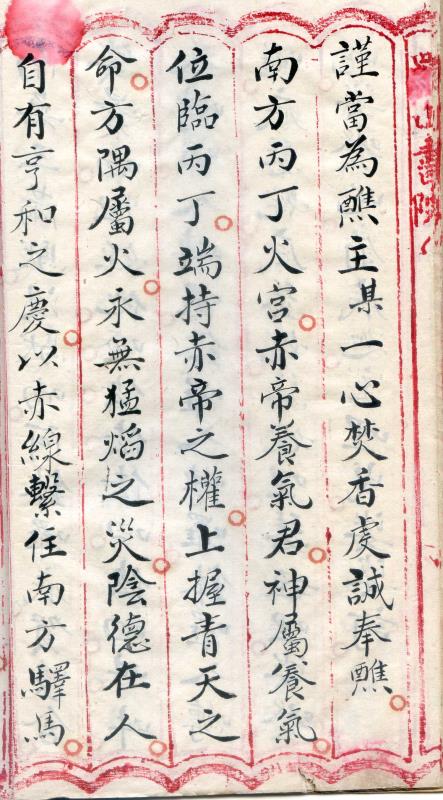 謹當為醮主某一心焚香虔誠奉醮
南方丙丁火宮赤帝養氣君神屬養氣
位臨丙丁端持赤帝之權上握青天之
命方隅屬火永無猛熖之災陰德在人
自有亨和之慶以赤線繫住南方驛馬